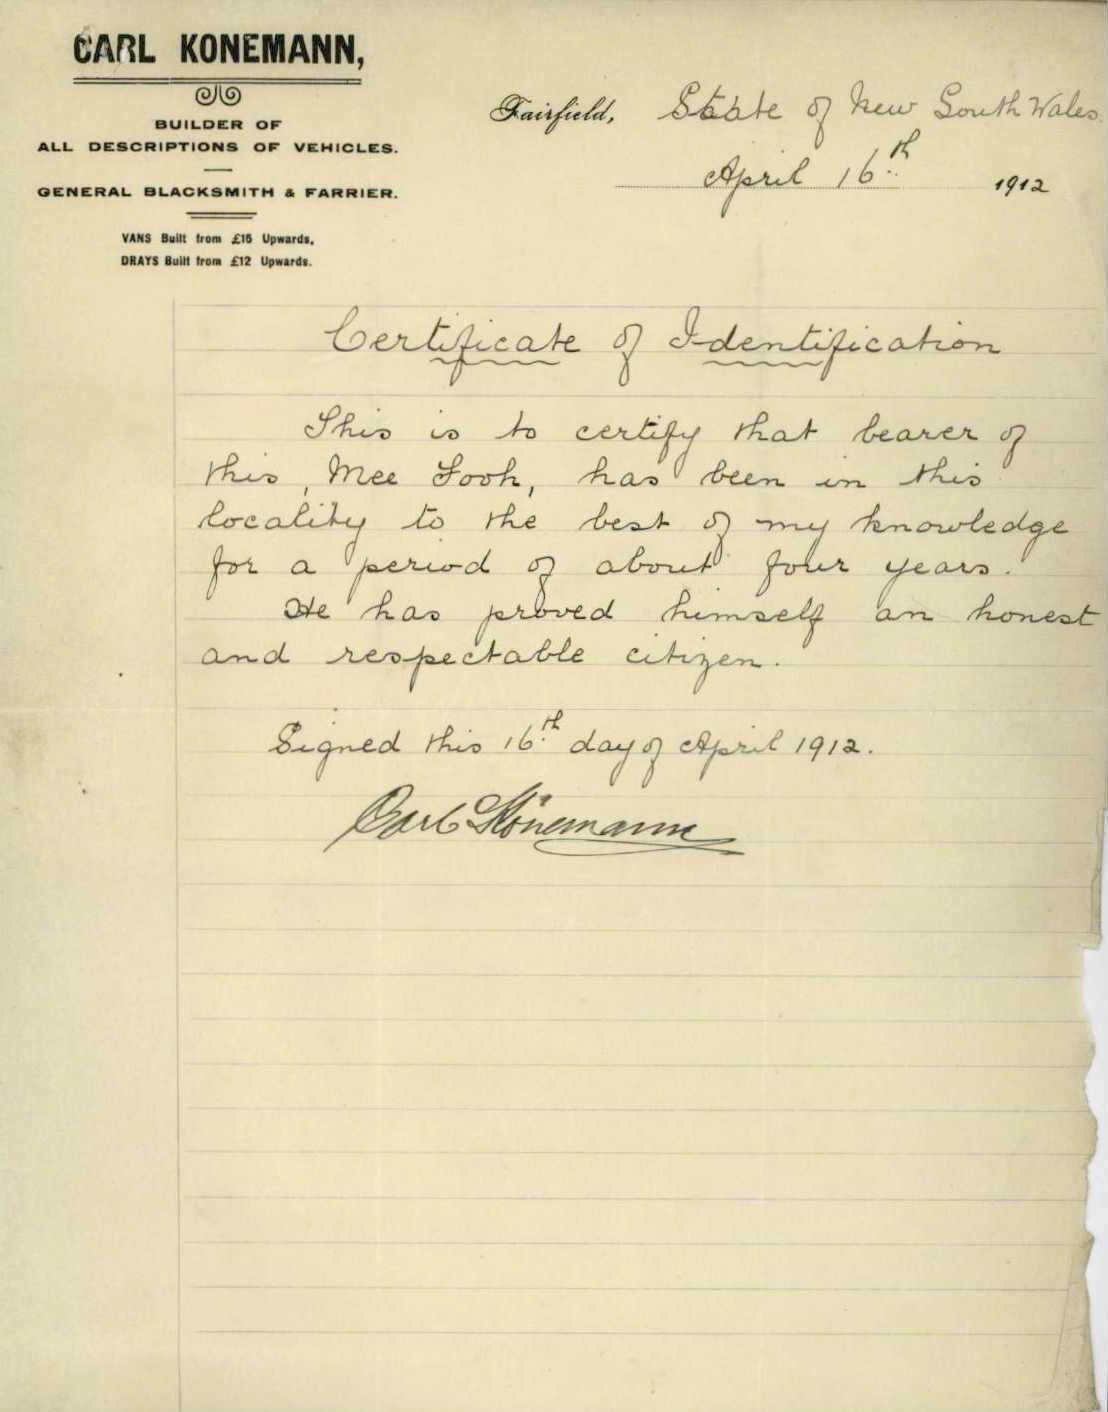 CARL KONEMANN,
BUILDER OF
ALL DESCRIPTIONS OF VEHICLES.
GENERAL BLACKSMITH & FARRIER.
VANS Built from £15 Upwards.
DRAYS Built from £12 Upwards.
Fairfield, State of New South Wales.
April 16th 1912
Certificate of Identification
This is to certify that bearer of
this, Mee Fook, has been in this
locality to the best of my knowledge
for a period of about four years.
He has proved himself an honest
and respectable citizen.
Signed this 16th day of April 1912.
Carl Könemann